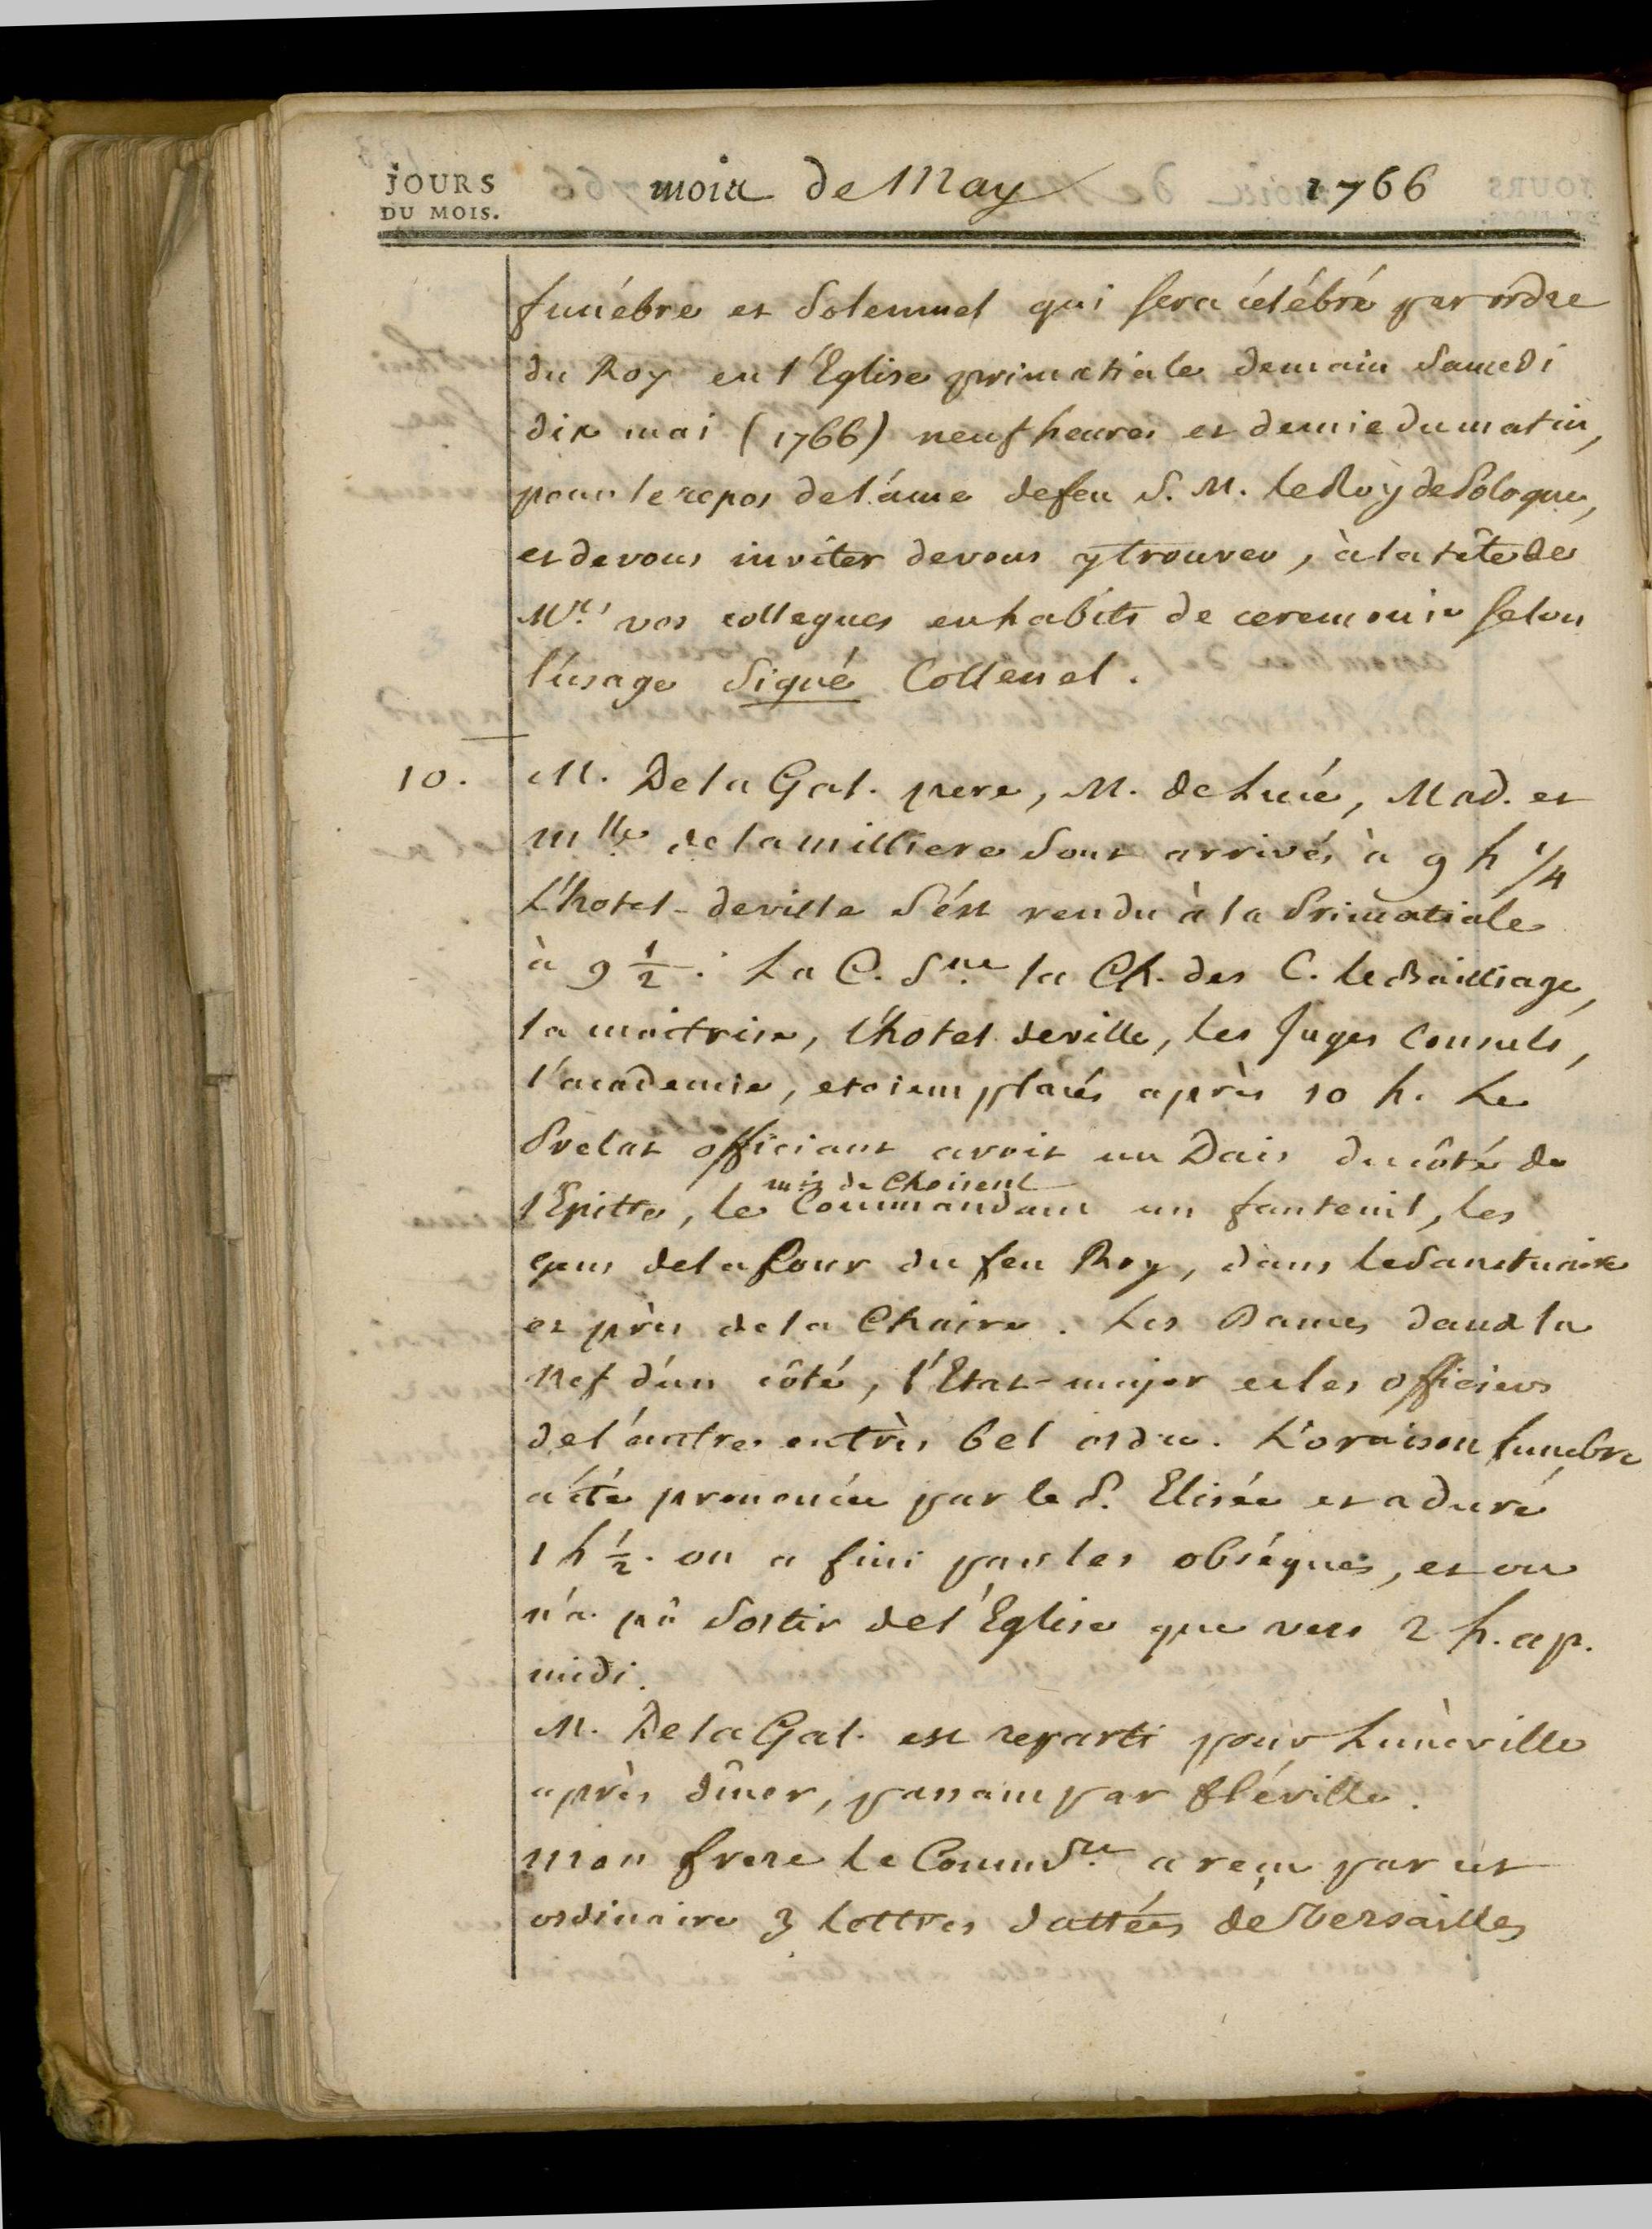 JOURS
DU MOIS.
mois de May 1766
funébre et Solemnel qui sera célébré par ordre
du Roy en l'Eglise primatiale demain Samedi
dix mai (1766) neuf heures et demie du matin,
pour le repos de l'ame de feu S. M. le Roy de Pologne,
et de vous inviter de vous y trouver, à la tête de
Mrs vos collegues en habits de ceremonie selon
l'usage Signé Collenel.
10. M. De la Gal. pere, M. de Lucé, Mad. et
Mlle de la milliere sont arrivés à 9 h 1/4
L'hotel-deville s'est rendu à la Primatiale
à 9 1/2. La C. Sne la Ch. des C. le Bailliage,
la maitrise, l'hotel deville, les Juges Consuls,
l'academie, etoient placés après 10 h. Le
Prelat officiant avoit un Dais du côté de
mis de Choiseul
l'Epitre, le Commandant un fauteuil, les
gens de la Cour du feu Roy, dans le Sanctuaire
et près de la Chaire. Les Dames dans la
Nef d'un côté, l'Etat-major et les officiers
de l'autre en très bel ordre. L'oraison funebre
a été prononcée par le P. Elisée et a duré
1 h 1/2. on a fini par les obséques, et on
n'a pû sortir de l'Eglise que vers 2 h. ap.
midi.
M. De la Gal. est reparti pour Lunéville
après dîner, passant par fléville.
mon frere le Commdre a reçu par cet
ordinaire 3 lettres dattées de Versailles